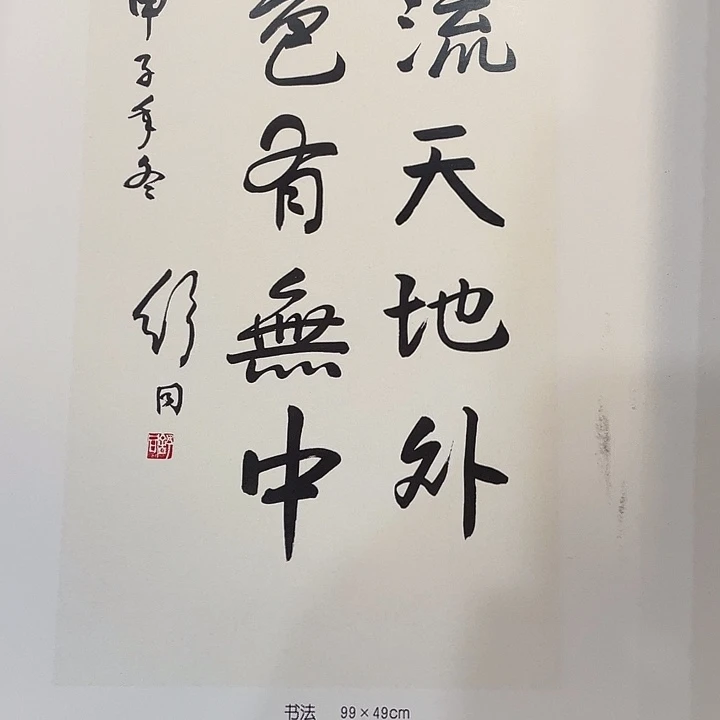 流天地外
色有無中
甲子年冬
舒同
舒同
书法 99×49cm